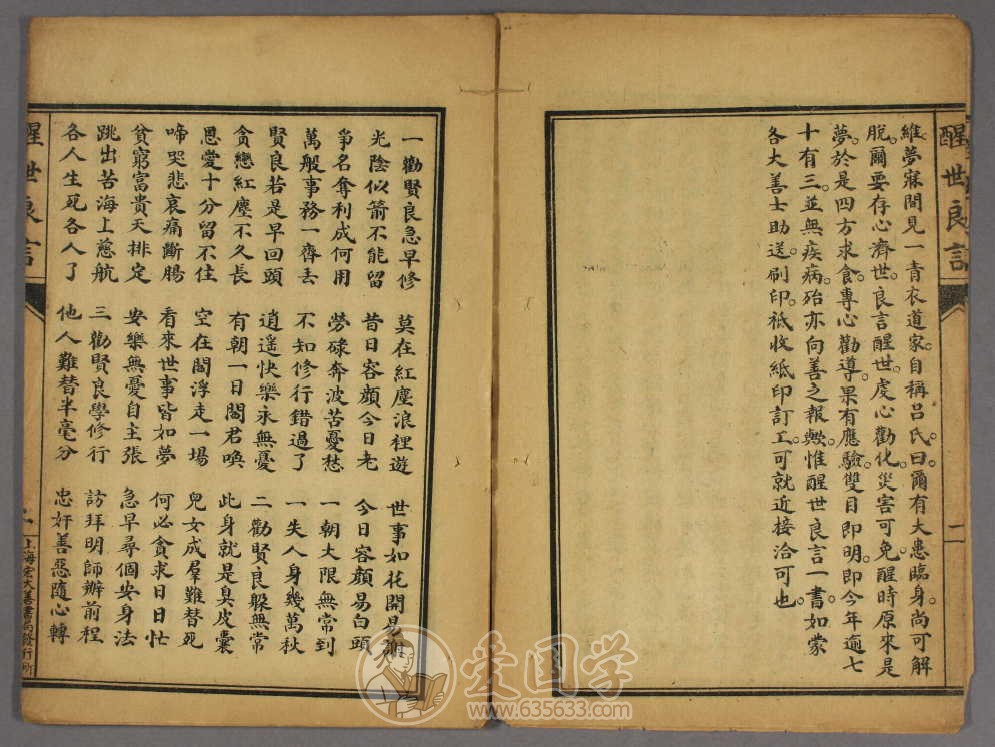 醒世良言
二
維夢寐間見一青衣道家。自稱呂氏。曰。爾有大患臨身。尚可解
脫。爾要存心濟世。良言醒世。虔心勸化。災害可免。醒時原來是
夢。於是四方求食。專心勸導。果有應驗。雙目即明。即今年逾七
十有三。並無疾病。殆亦向善之報歟。惟醒世良言一書。如蒙
各大善士助送刷印。祇收紙印訂工。可就近接洽可也
一勸賢良急早修 莫在紅塵浪裡遊 世事如花開易謝
光陰似箭不能留 昔日容顏今日老 今日容顏易白頭
爭名奪利成何用 勞碌奔波苦憂愁 一朝大限無常到
萬般事務一齊去 不知修行錯過了 一失人身幾萬秋
賢良若是早回頭 逍遙快樂永無憂 二勸賢良躲無常
貪戀紅塵不久長 有朝一日閻君喚 此身就是臭皮囊
恩愛十分留不住 空在閻浮走一場 兒女成羣難替死
啼哭悲哀痛斷腸 看來世事皆如夢 何必貪求日日忙
貧窮富貴天排定 安樂無憂自主張 急早尋個安身法
跳出苦海上慈航 三勸賢良學修行 訪拜明師辦前程
各人生死各人了 他人難替半毫分 忠奸善惡隨心轉
醒世良言
二
上海宏大善書局發行所
爱国学
www.635633.com